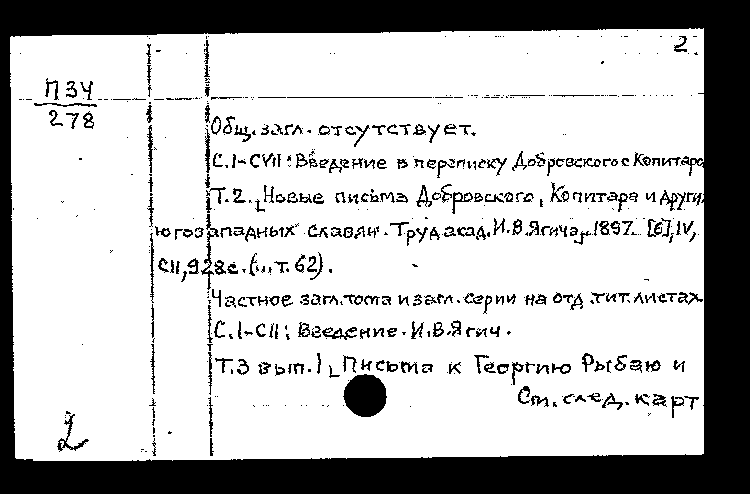 2
П 34
278
Общ. загл. отсутствует.
С.I-CVII: Введение в переписку Добровского с Копитаро
Т.2. Новые письма Добровского, Копитара и других
югозападных славян. Труд акад. И.В.Ягича. 1897. [6], IV,
CII, 928 с. (... т. 62).
Частное загл. тома и загл. серии на отд. тит. листах
С.I-CII: Введение. И.В.Ягич.
Т.3 вып. I Письма к Георгию Рыбаю и
См. след. карт
2